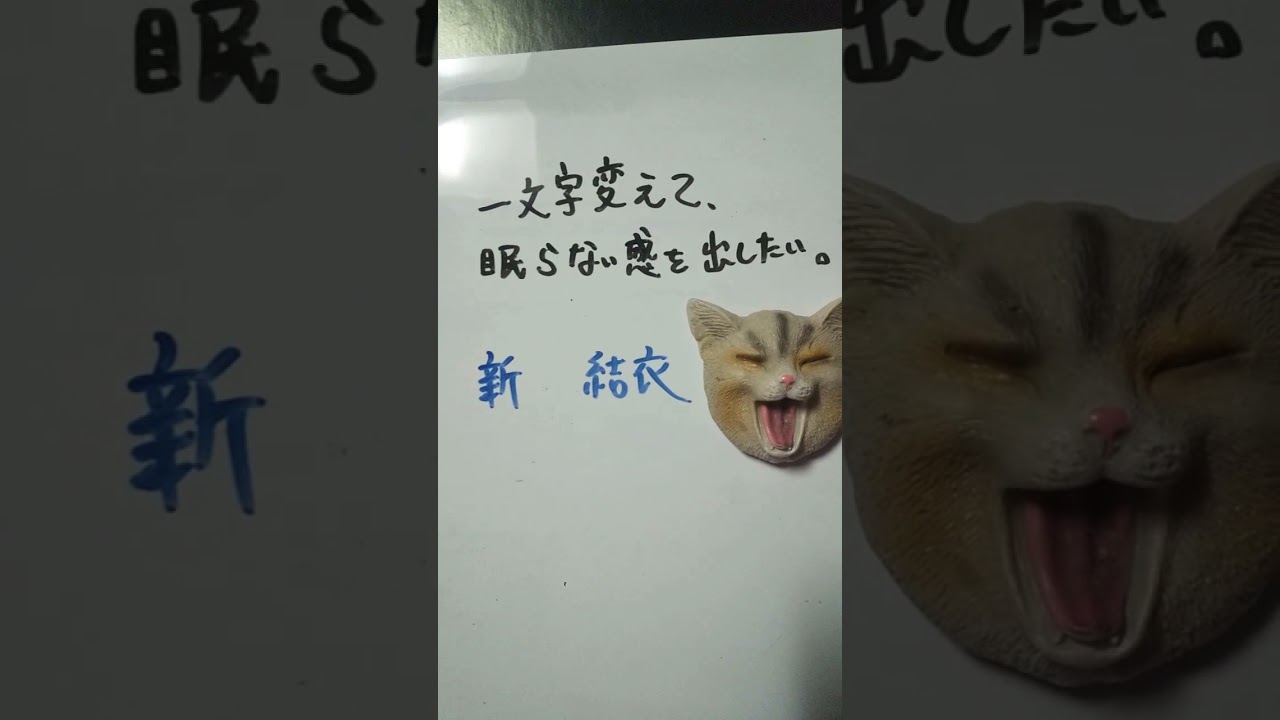 一文字変えて、
眠らない感を出したい。
新 結衣